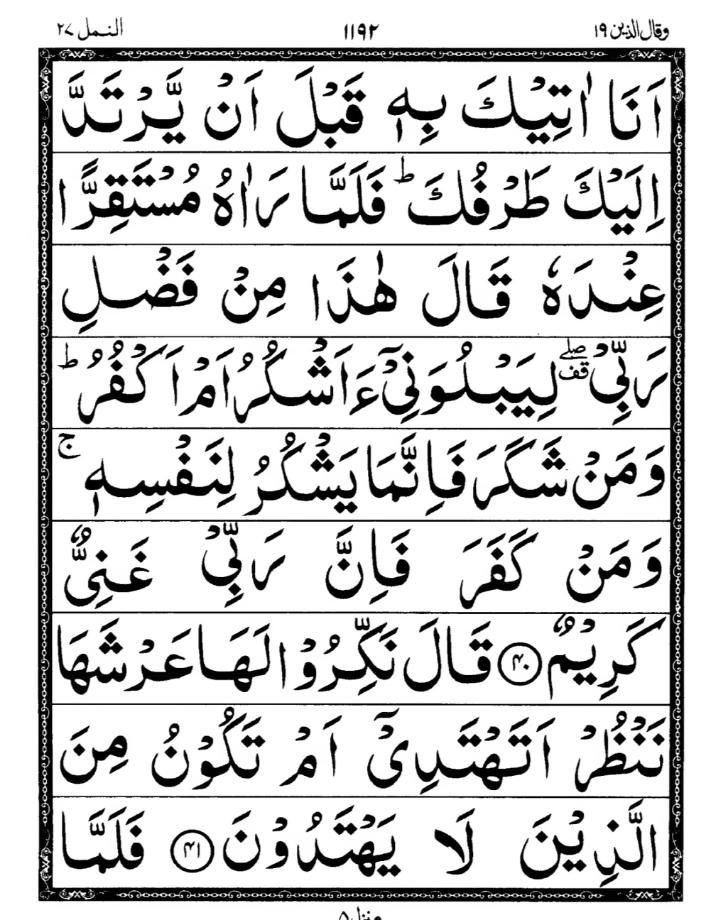 وقال الذین ۱۹ ۱۱۹۲ النمل ۲۷
اَنَا اٰتِیْکَ بِهٖ قَبْلَ اَنْ یَّرْتَدَّ
اِلَیْکَ طَرْفُکَ ؕ فَلَمَّا رَاٰهُ مُسْتَقِرًّا
عِنْدَهٗ قَالَ هٰذَا مِنْ فَضْلِ
رَبِّیْ ۖ۫ لِیَبْلُوَنِیْۤ ءَاَشْکُرُ اَمْ اَکْفُرُ ؕ
وَمَنْ شَکَرَ فَاِنَّمَا یَشْکُرُ لِنَفْسِهٖ ۚ
وَمَنْ کَفَرَ فَاِنَّ رَبِّیْ غَنِیٌّ
کَرِیْمٌ ﴿۴۰﴾ قَالَ نَکِّرُوْا لَهَا عَرْشَهَا
نَنْظُرْ اَتَهْتَدِیْۤ اَمْ تَکُوْنُ مِنَ
الَّذِیْنَ لَا یَهْتَدُوْنَ ﴿۴۱﴾ فَلَمَّا
منزل ۵